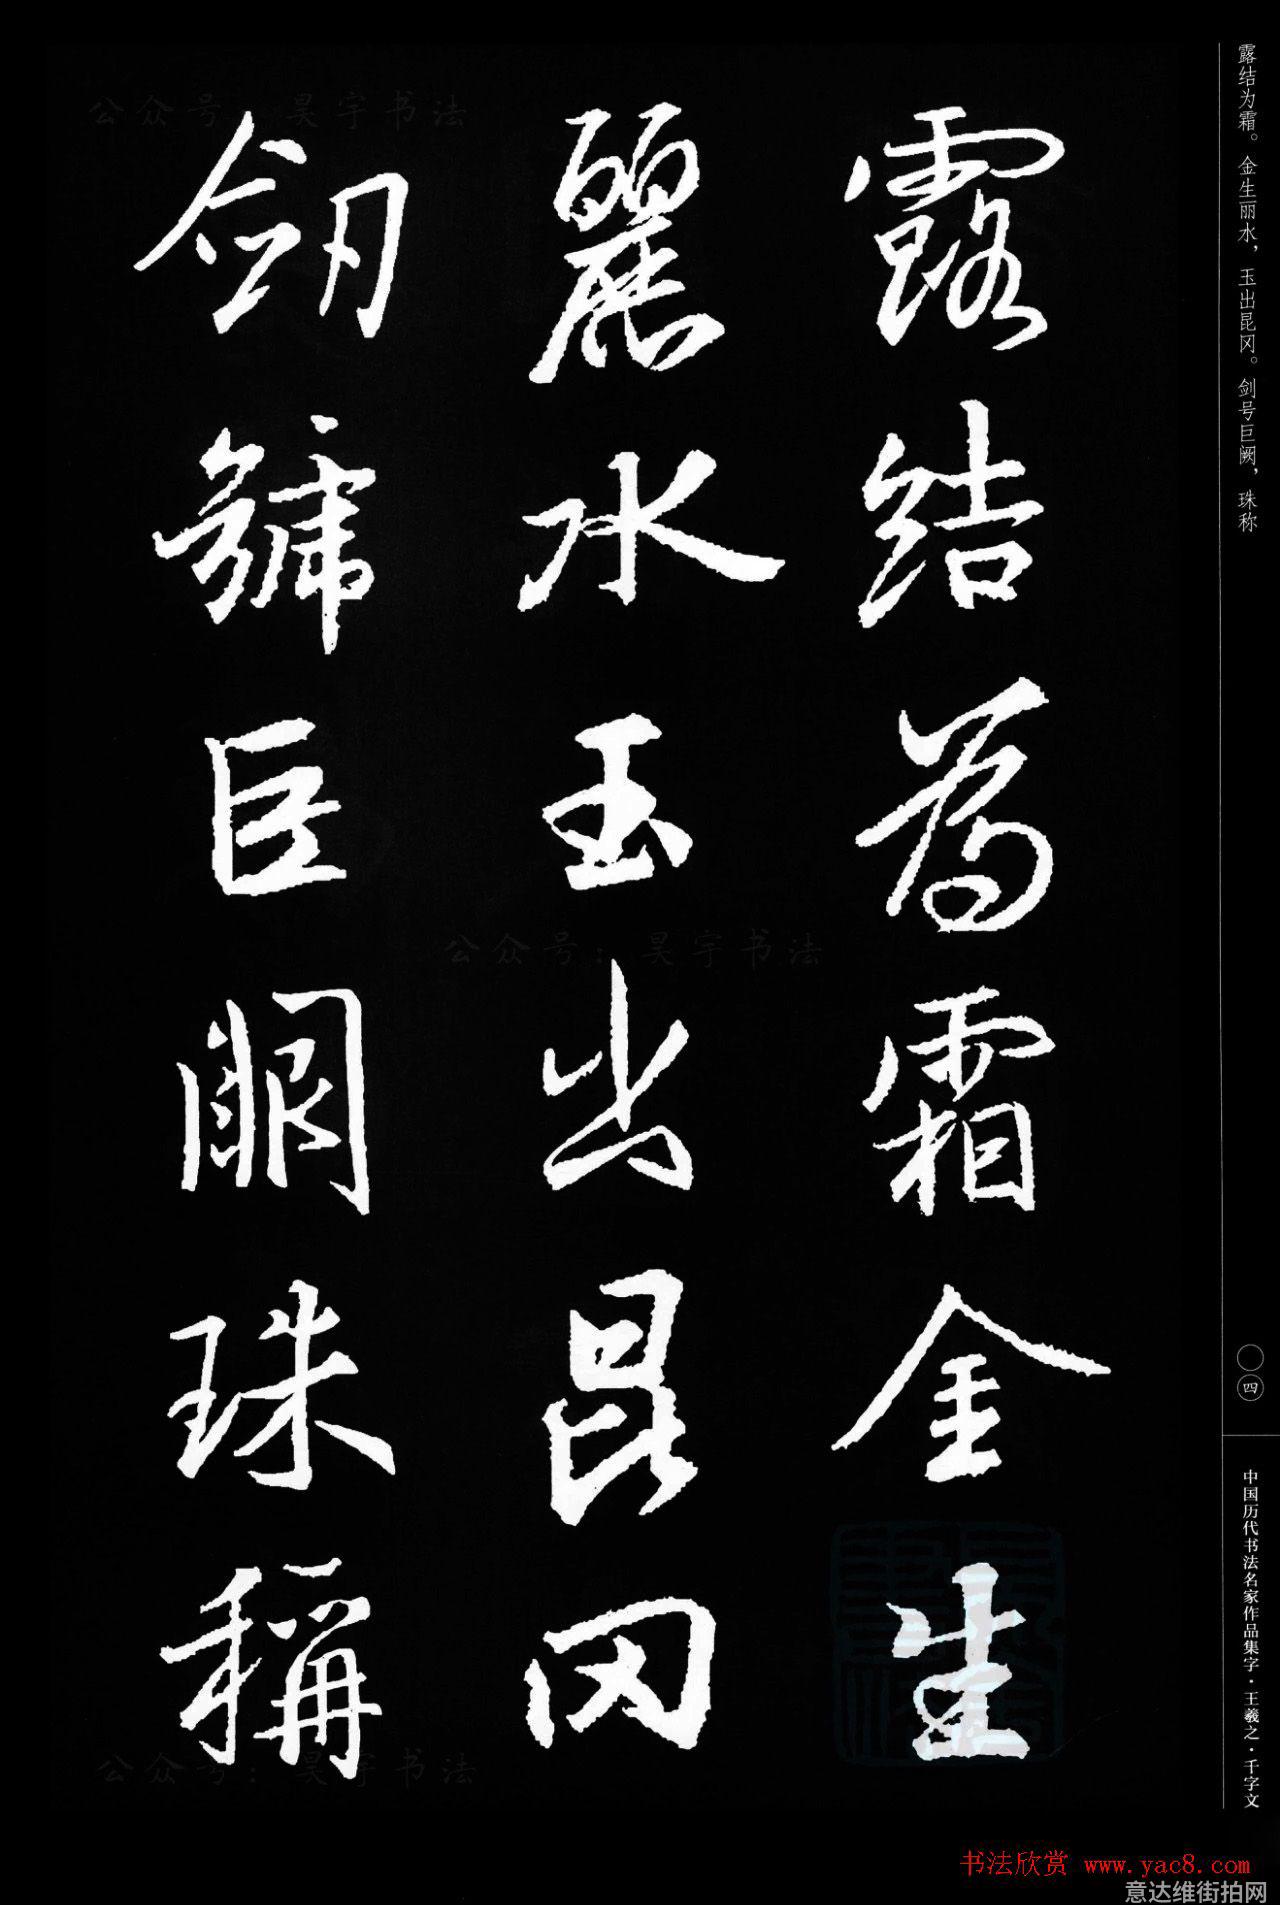 露結為霜金生
麗水玉出崑冈
劒號巨闕珠稱
露结为霜。金生丽水，玉出昆冈。剑号巨阙，珠称
〇四
中国历代书法名家作品集字·王羲之·千字文
公众号：昊宇书法
公众号：昊宇书法
公众号：昊宇书法
书法欣赏 www.yac8.com
意达维街拍网